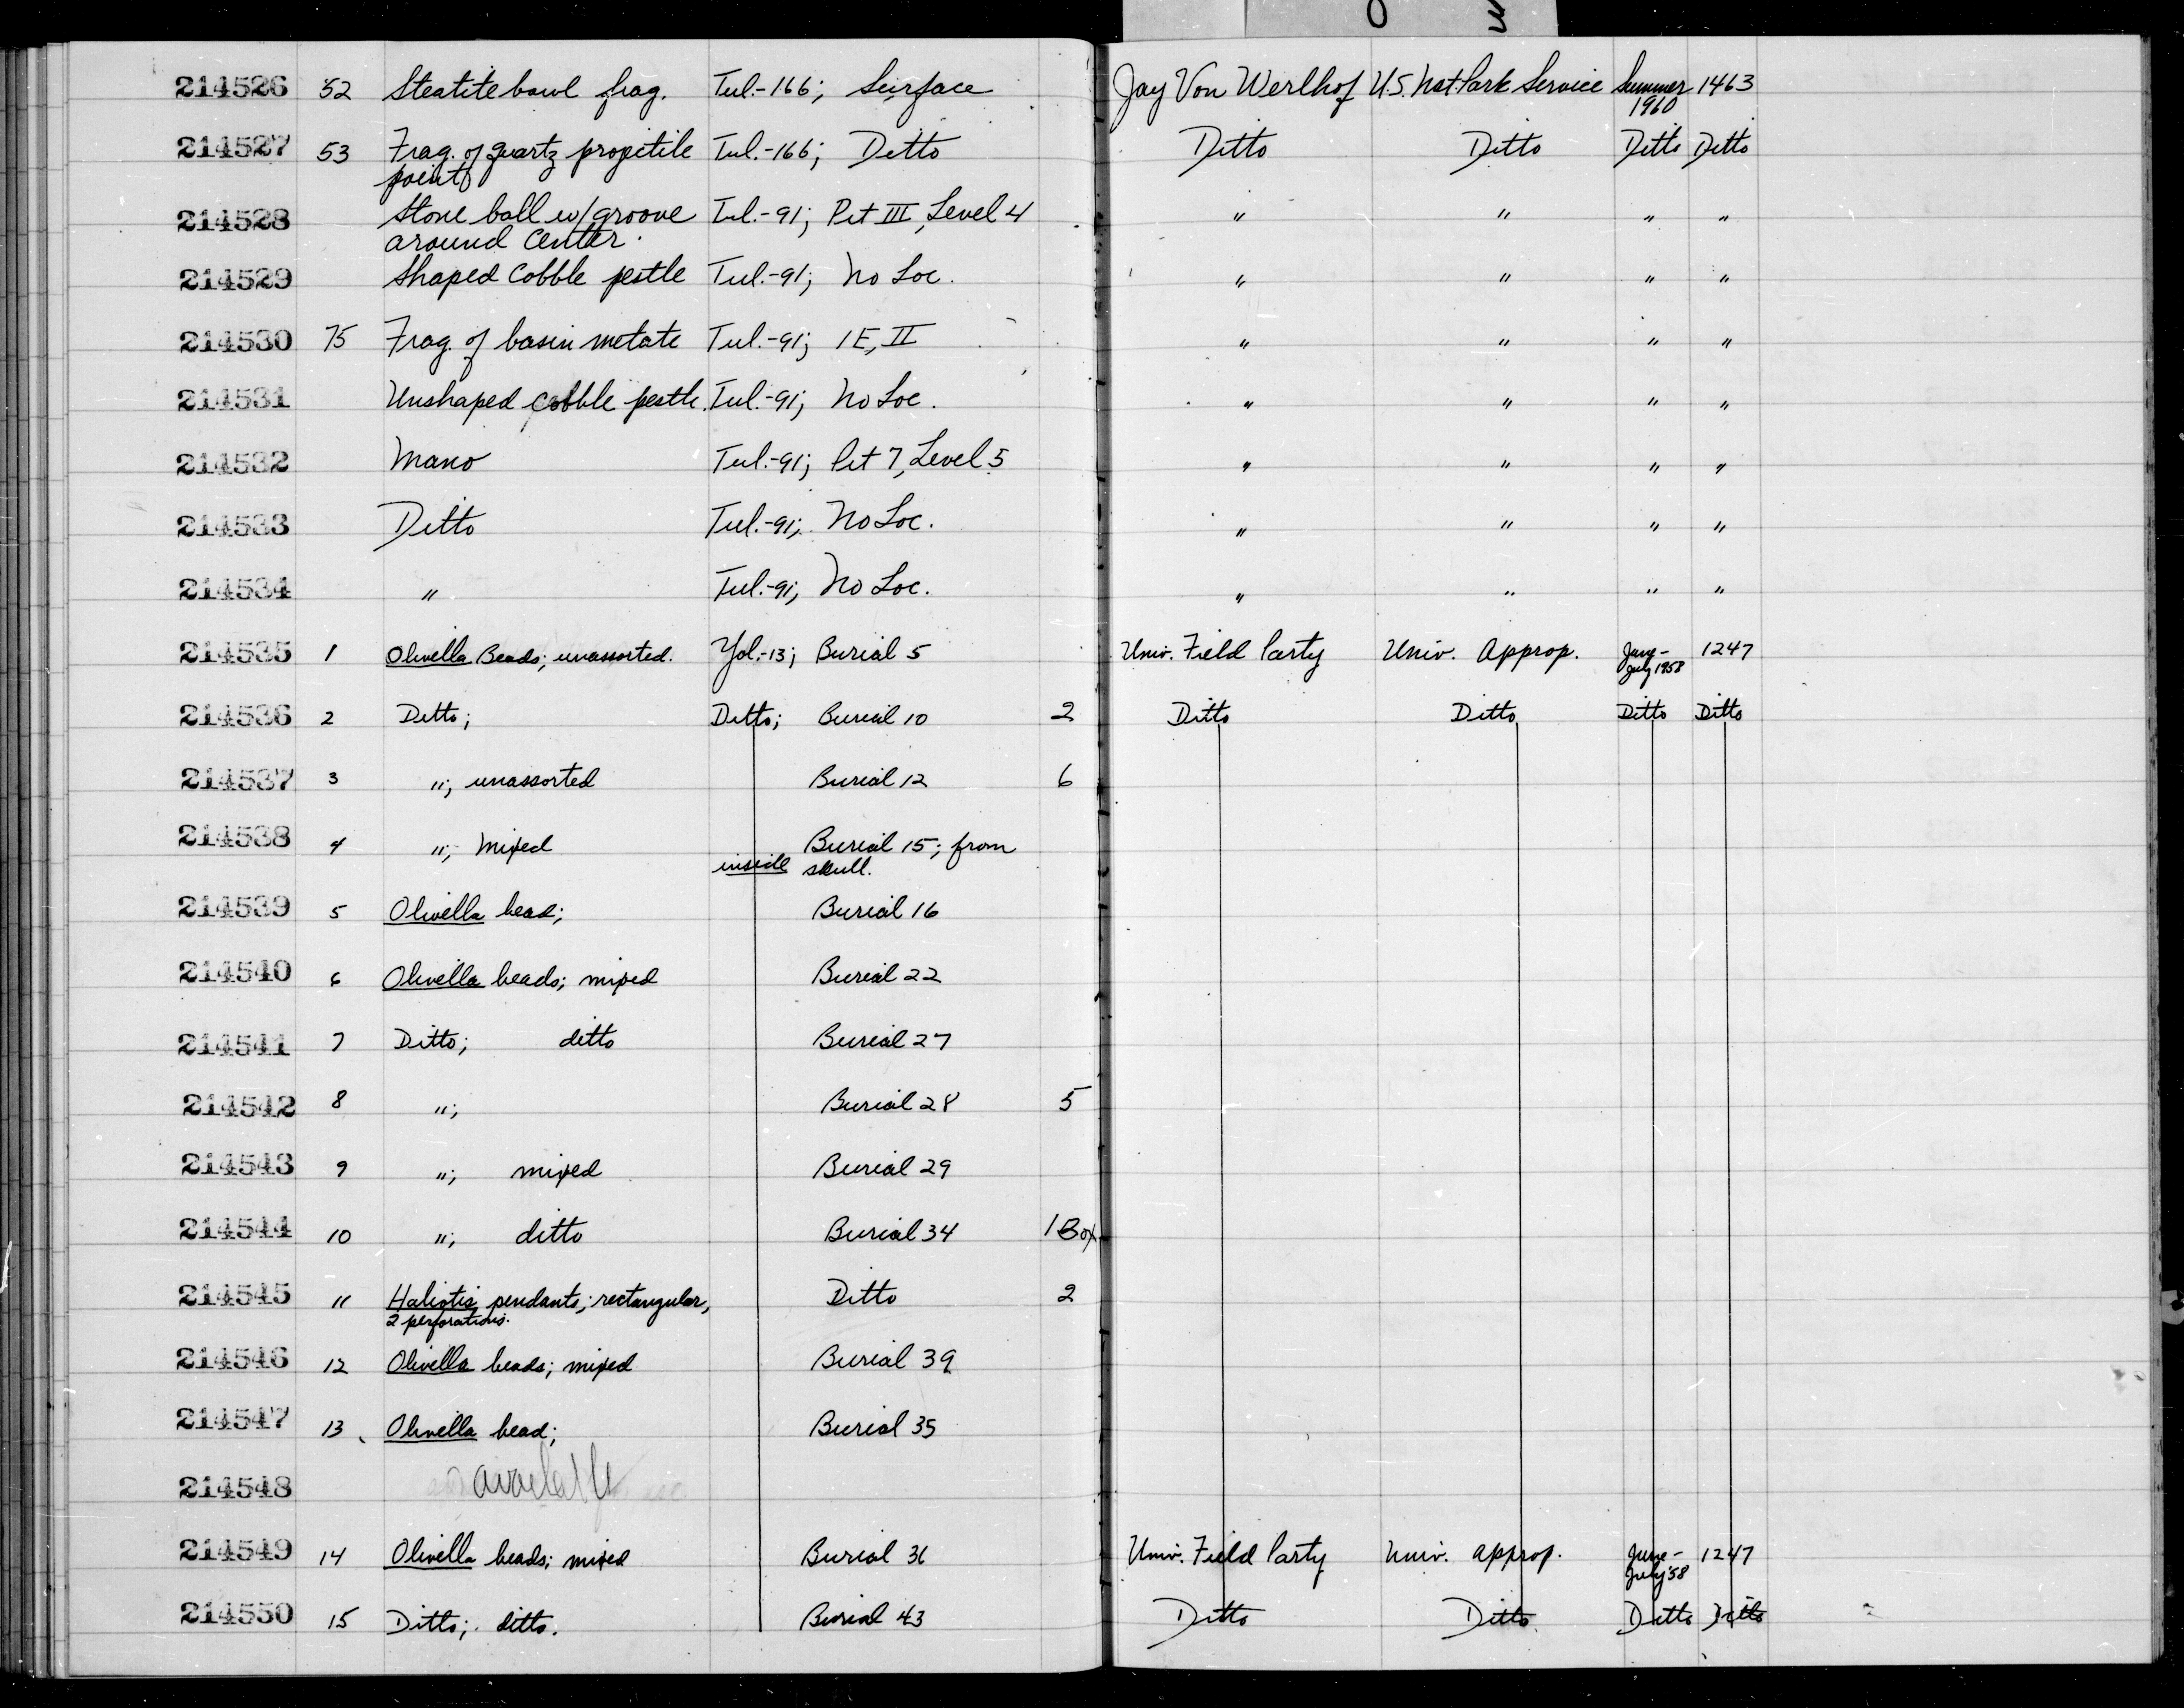 214526 52 Steatite bowl frag. Tul.-166; Surface Jay Von Werlhof U.S. Nat. Park Service Summer 1463
1960
214527 53 Frag. of quartz projetile Tul.-166; Ditto Ditto Ditto Ditto Ditto
point
214528 Stone ball w/groove Tul.-91; Pit III, Level 4 " " " "
around center.
214529 Shaped cobble pestle Tul.-91; No Loc. " " " "
214530 75 Frag. of basin metate Tul.-91; 1E, II " " " "
214531 Unshaped cobble pestle. Tul.-91; No Loc. " " " "
214532 Mano Tul.-91; Pit 7, Level 5 " " " "
214533 Ditto Tul.-91; No Loc. " " " "
214534 " Tul.-91; No Loc. " " " "
214535 1 Olivella Beads; unassorted. Yol.-13; Burial 5 Univ. Field Party Univ. Approp. June- 1247
July 1958
214536 2 Ditto; Ditto; Burial 10 2 Ditto Ditto Ditto Ditto
214537 3 "; unassorted Burial 12 6
214538 4 "; Mixed Burial 15; from
inside skull.
214539 5 Olivella bead; Burial 16
214540 6 Olivella beads; mixed Burial 22
214541 7 Ditto; ditto Burial 27
214542 8 "; Burial 28 5
214543 9 "; mixed Burial 29
214544 10 "; ditto Burial 34 1 Box
214545 11 Haliotis pendants; rectangular, Ditto 2
2 perforations.
214546 12 Olivella beads; mixed Burial 39
214547 13 Olivella bead; Burial 35
214548 available
214549 14 Olivella beads; mixed Burial 36 Univ. Field Party Univ. approp. June- 1247
July '58
214550 15 Ditto; ditto. Burial 43 Ditto Ditto Ditto Ditto